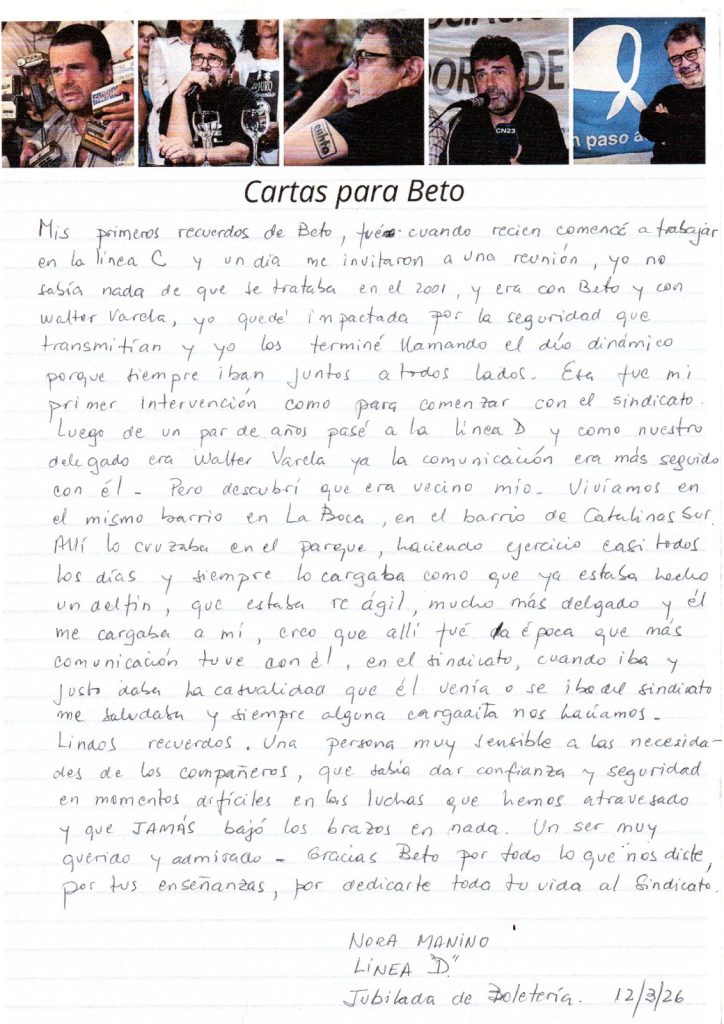 CN23
n paso a
Cartas para Beto
Mis primeros recuerdos de Beto, fué cuando recien comencé a trabajar
en la línea C y un día me invitaron a una reunión, yo no
sabía nada de que se trataba en el 2001, y era con Beto y con
Walter Varela, yo quedé impactada por la seguridad que
transmitían y yo los terminé llamando el dúo dinámico
porque siempre iban juntos a todos lados. Esa fue mi
primer intervención como para comenzar con el sindicato.
Luego de un par de años pasé a la línea D y como nuestro
delegado era Walter Varela ya la comunicación era más seguido
con él - Pero descubrí que era vecino mío - Vivíamos en
el mismo barrio en La Boca, en el barrio de Catalinas Sur.
Allí lo cruzaba en el parque, haciendo ejercicio casi todos
los días y siempre lo cargaba como que ya estaba hecho
un delfín, que estaba re ágil, mucho más delgado y él
me cargaba a mí, creo que allí fué la época que más
comunicación tuve con él, en el sindicato, cuando iba y
justo daba la casualidad que él venía o se iba del sindicato
me saludaba y siempre alguna cargadita nos hacíamos -
Lindos recuerdos. Una persona muy sensible a las necesida-
des de los compañeros, que sabía dar confianza y seguridad
en momentos difíciles en las luchas que hemos atravesado
y que JAMÁS bajó los brazos en nada. Un ser muy
querido y admirado - Gracias Beto por todo lo que nos diste,
por tus enseñanzas, por dedicarte toda tu vida al Sindicato.
NORA MANINO
LíNEA "D"
Jubilada de Boletería. 12/3/26